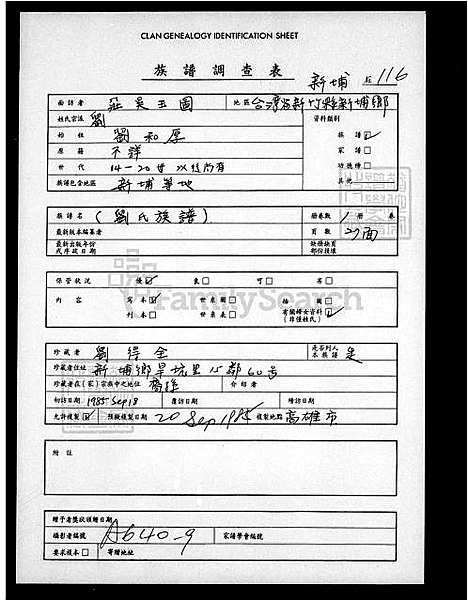 CLAN GENEALOGY IDENTIFICATION SHEET
族譜調查表
新埔 116
面訪者 莊吳玉圖 地區 台灣省新竹縣新埔鄉
姓氏宗派 劉 資料類別
始祖 劉和厚 族譜☑
原籍 不詳 家譜□
世代 14-20世 以後尚有 功德榜□
族譜包含地區 新埔等地 其他
族譜名 (劉氏族譜) 冊卷數 1冊 卷
最新版本編纂者 頁數 面
最新出版年份 缺掉缺頁
或序跋日期 部份損壞
保管狀況 優☑ 良□ 可□ 劣□
內容 寫本☑ 世系圖□ 插圖□
刊本□ 世系表□ 有關婦女資料☑
(非僅姓氏)
珍藏者 劉得全 是否列入本族譜 是
珍藏者住址 新埔鄉旱坑里15鄰60号
珍藏者在(家)宗族中之地位 裔孫 介紹者
初訪日期 1985 Sep 18 覆訪日期 增訪日期
允許複製☑ 預擬複製日期 20 Sep 1985 複製地點 高雄市
附註
贈予者獎狀頒贈日期
攝影者編號 A640-9 家譜學會編號
要求謄本□ 寄贈地址
FamilySearch